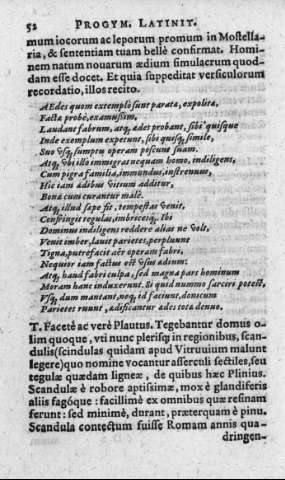 52 PROGYM. LATINIT.
mum iocorum ac leporum promum in Mostella-
ria, & sententiam tuam bellè confirmat. Homi-
nem natum nouarum ædium simulacrum quod-
dam esse docet. Et quia suppeditat versiculorum
recordatio, illos recito.
AEdes quom extemplò sunt paratæ, expolitæ,
Factæ probè, examussim,
Laudant fabrum, atq, ædes probant, sibi quisque
Inde exemplum expetunt, sibi quisq, simile,
Suo vsq, sumptu operam poscunt suam.
Atq, vbi illo immigrat nequam homo, indiligens,
Cum pigra familia, immundus, instrenuus,
Hic iam ædibus vitium additur,
Bonæ cum curantur malè.
Atq, illud sæpe fit, tempestas venit,
Confringit tegulas, imbricesq́. Ibi
Dominus indiligens reddere alias ne volt,
Venit imber, lauit parietes, perpluunt
Tigna, putrefacit aër operam fabri.
Nequior iam factus est vsus ædium:
Atq, haud fabri culpa, sed magna pars hominum
Moram hanc induxerunt. Si quid nummo sarciri potest,
Vsq, dum mantant, neq, id faciunt, donicum
Parietes ruunt, ædificantur ædes totæ denuo.
T. Facetè ac verè Plautus. Tegebantur domus o-
lim quoque, vti nunc plerisq; in regionibus, scan-
dulis (scindulas quidam apud Vitruuium malunt
legere) quo nomine vocantur asserculi sectiles, seu
tegulæ quædam ligneæ, de quibus hæc Plinius.
Scandulæ è robore aptissimæ, mox è glandiferis
aliis fagóque: facillimè ex omnibus quæ resinam
ferunt: sed minimè, durant, præterquam è pinu.
Scandula contectum fuisse Romam annis qua-
dringen-